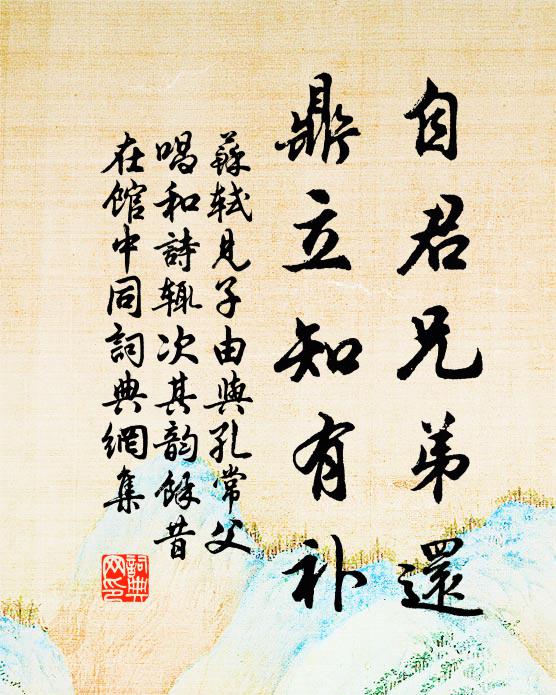 自君兄弟還
鼎立知有补
蘇軾見子由與孔常父
唱和詩辄次其韵餘昔
在館中同詞典網集
詞典
网印